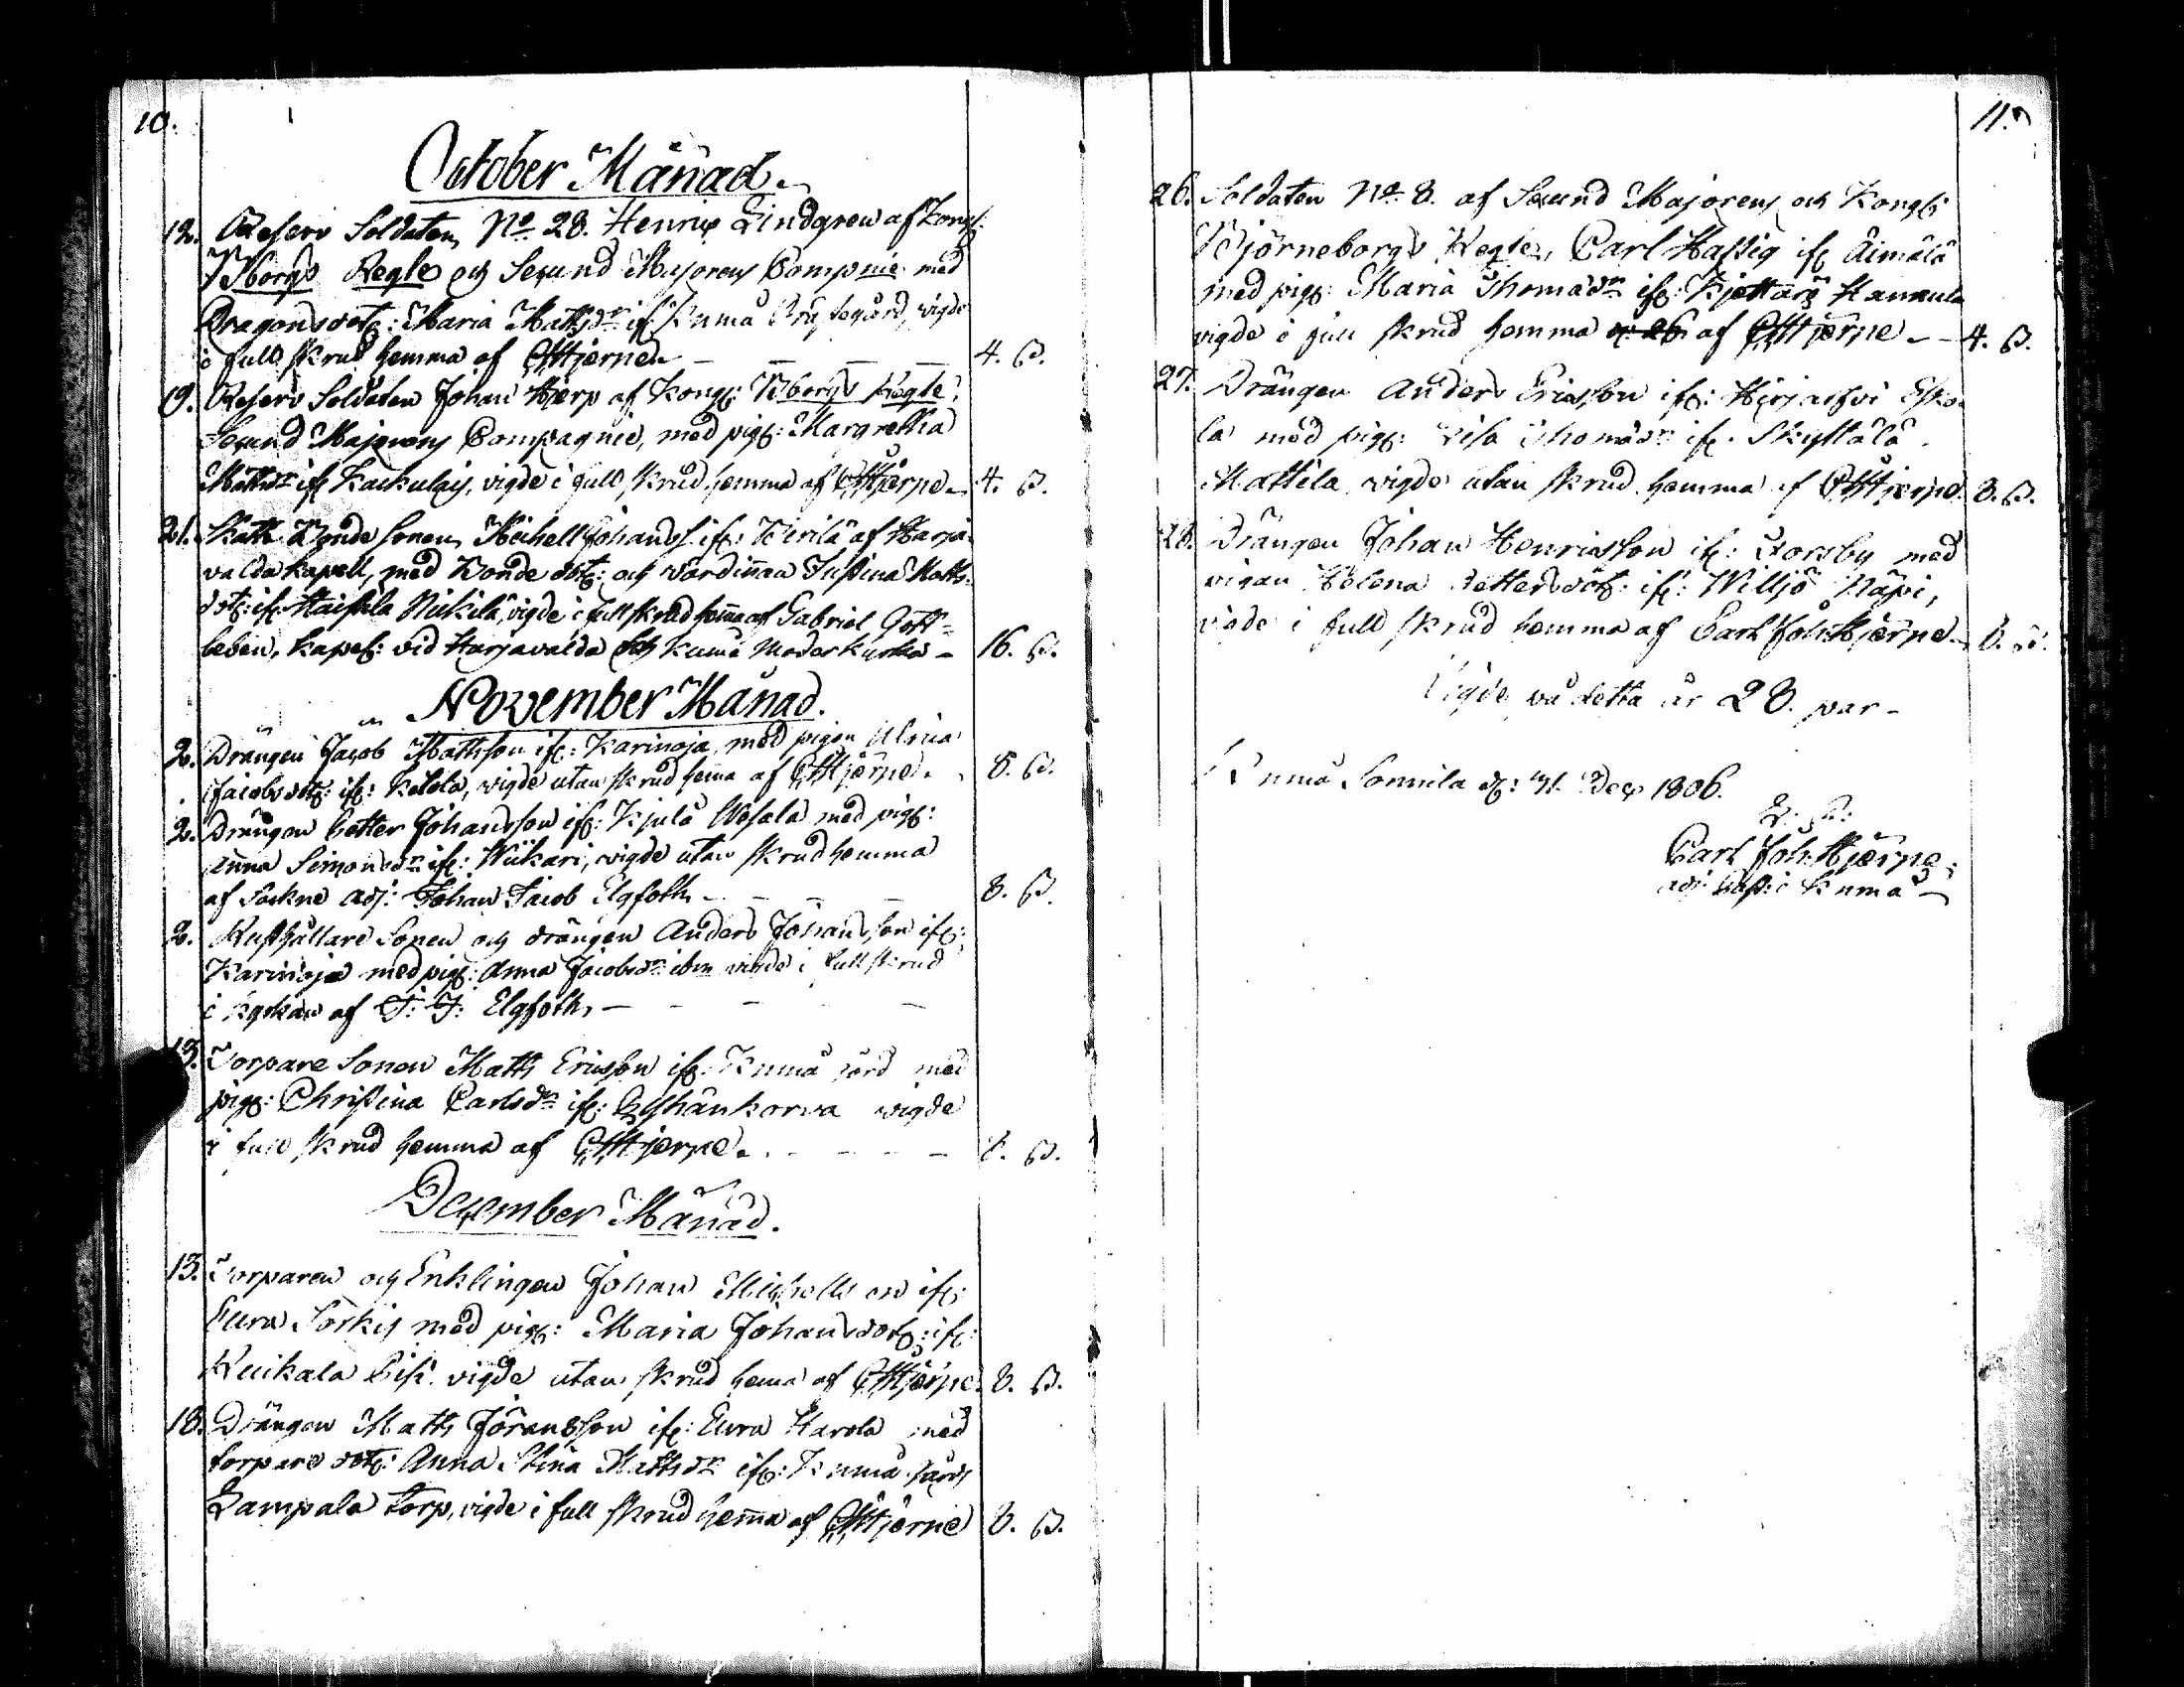 10.
October Månad.
12. Reserv Soldaten No 28. Henric Lindgren af Kongl:
Bborgs Regte och Secund Majorens Compnie med
Dragonsdot: Maria Mattsdr ifr Kumå Prästegård, vigde
i full skrud hemma af CJHjerpe. 4. ß.
19. Reserv Soldaten Johan Hjerp af Kongl: Bborgs Regte:
Secund Majorens Compagnie, med pig: Margretha
Mattsdr ifr Kackulais, vigde i full skrud hemma af CJHjerpe. 4. ß.
21. Skatte Bonde Sonen Michell Johanss. ifr: Pirilä af Harja-
valda kapell, med Bonde dot: och värdinnan Justina Matts-
dot: ifr Haistila Nickilä, vigde i full skrud hemma af Gabriel Gott-
leben, kapel: vid Harjavalda och Kumå Moderkyrka 16. ß.
November Månad.
2. Drängen Jacob Mattsson ifr: Karinoja med pigan Ulrica
Jacobsdot: ifr: Kilola, vigde utan skrud hema af CJHjerpe. 8. ß.
2. Drängen Petter Johansson ifr: Kjulå Wesala med pig:
Anna Simonsdr ifr: Wiikari, vigde utan skrud hemma
af Sockne adj: Johan Jacob Elgfoth 8. ß.
2. Rusthållare Sonen och drängen Anders Johansson ifr:
Karinoja med pig: Anna Jacobsdr ibm vigde i full skrud
i Kyrkan af J: J: Elgfoth,
13. Torpare Sonen Matts Ericsson ifr: Kumå gård med
pig: Christina Carlsdr ifr: Lyhänkorva vigde
i full skrud hemma af CJHjerpe. 8. ß.
December Månad.
13. Torparen och Enklingen Johan Michellsson ifr:
Eura Sorkis med pig: Maria Johansdot: ifr:
Kuikala vigde utan skrud hema af CJHjerpe. 8. ß.
18. Drängen Matts Göransson ifr: Eura Harola med
torpare dot: Anna Stina Mattsdr ifr: Kumå gårds
Lampala torp, vigde i full skrud hema af CJHjerpe 8. ß.
11.
26. Soldaten No 8. af Secund Majorens och Kongl:
Björneborgs Regte, Carl Hassig ifr Äimälä
med pig: Maria Thomædr ifr: Kjettarä Hannula
vigde i full skrud hemma d: 26 af CJHjerpe 4. ß.
27. Drängen Anders Ericsson ifr: Hirjarfvi Esko-
la med pig: Lisa Thomædr ifr. Skyttälä
Mattila, vigde utan skrud hemma af CJHjerpe 8. ß.
28. Drängen Johan Henricsson ifr: Forsby med
pigan Helena Pettersdot: ifr: Willjo Näpi,
vigde i full skrud hemma af Carl Joh: Hjerpe 8. ß.
Vigde på detta år 28. par
Kumå Sonnila d: 31. Dec 1806.
Carl Joh: Hjerpe
adj: Past: i Kumå